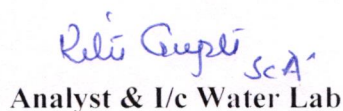 Gupta
Sc 'A'
Analyst & I/c Water Lab